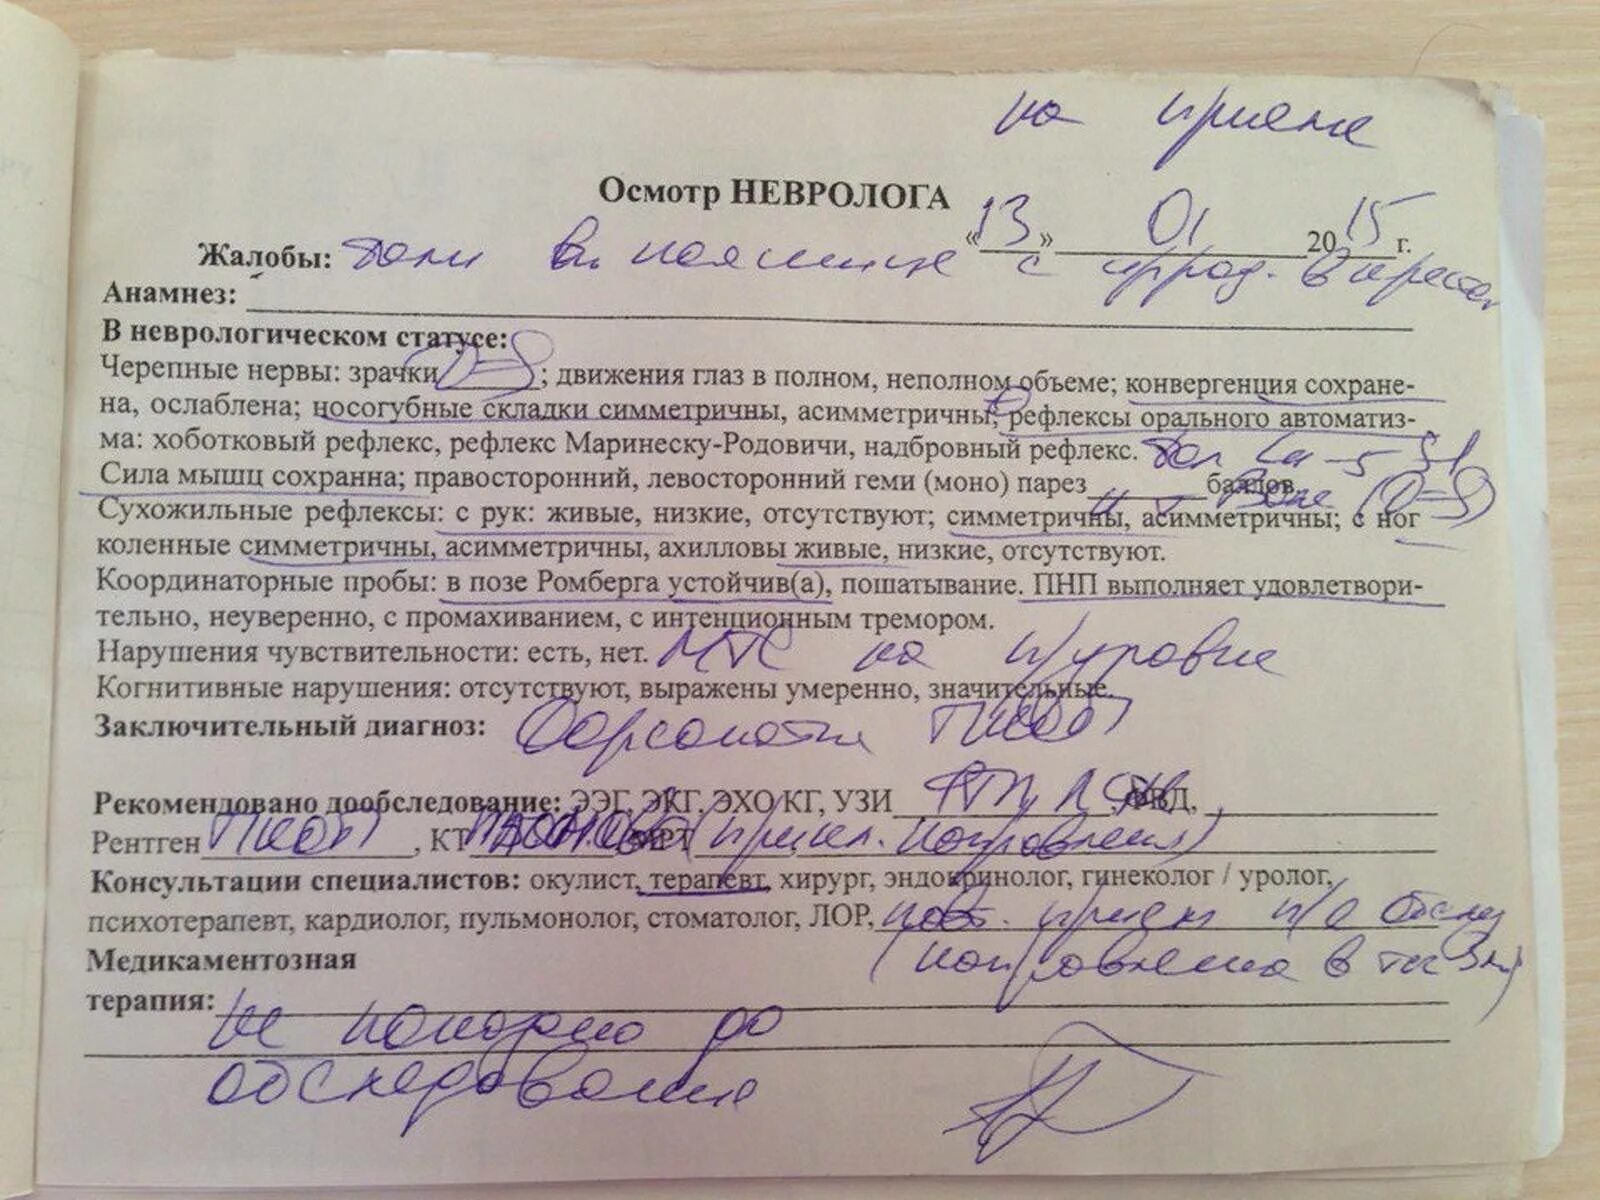 на приеме
Осмотр НЕВРОЛОГА
«13» 01 2015 г.
Жалобы: боли в пояснице с иррад. в крестец
Анамнез:
В неврологическом статусе:
Черепные нервы: зрачки D=S; движения глаз в полном, неполном объеме; конвергенция сохране-
на, ослаблена; носогубные складки симметричны, асимметричны; рефлексы орального автоматиз-
ма: хоботковый рефлекс, рефлекс Маринеску-Родовичи, надбровный рефлекс.
Сила мышц сохранна; правосторонний, левосторонний геми (моно) парез баллов.
Сухожильные рефлексы: с рук: живые, низкие, отсутствуют; симметричны, асимметричны; с ног (D=S)
коленные симметричны, асимметричны, ахилловы живые, низкие, отсутствуют.
Координаторные пробы: в позе Ромберга устойчив(а), пошатывание. ПНП выполняет удовлетвори-
тельно, неуверенно, с промахиванием, с интенционным тремором.
Нарушения чувствительности: есть, нет. МТС на п/уровне
Когнитивные нарушения: отсутствуют, выражены умеренно, значительные.
Заключительный диагноз: Дорсопатия ПКОП
Рекомендовано дообследование: ЭЭГ, ЭКГ, ЭХО КГ, УЗИ , ФВД,
Рентген ПКОП, КТ МРТ направления)
Консультации специалистов: окулист, терапевт, хирург, эндокринолог, гинеколог / уролог,
психотерапевт, кардиолог, пульмонолог, стоматолог, ЛОР, повт. прием п/о обслед
(направлена в
Медикаментозная
терапия:
не показано до
обследования